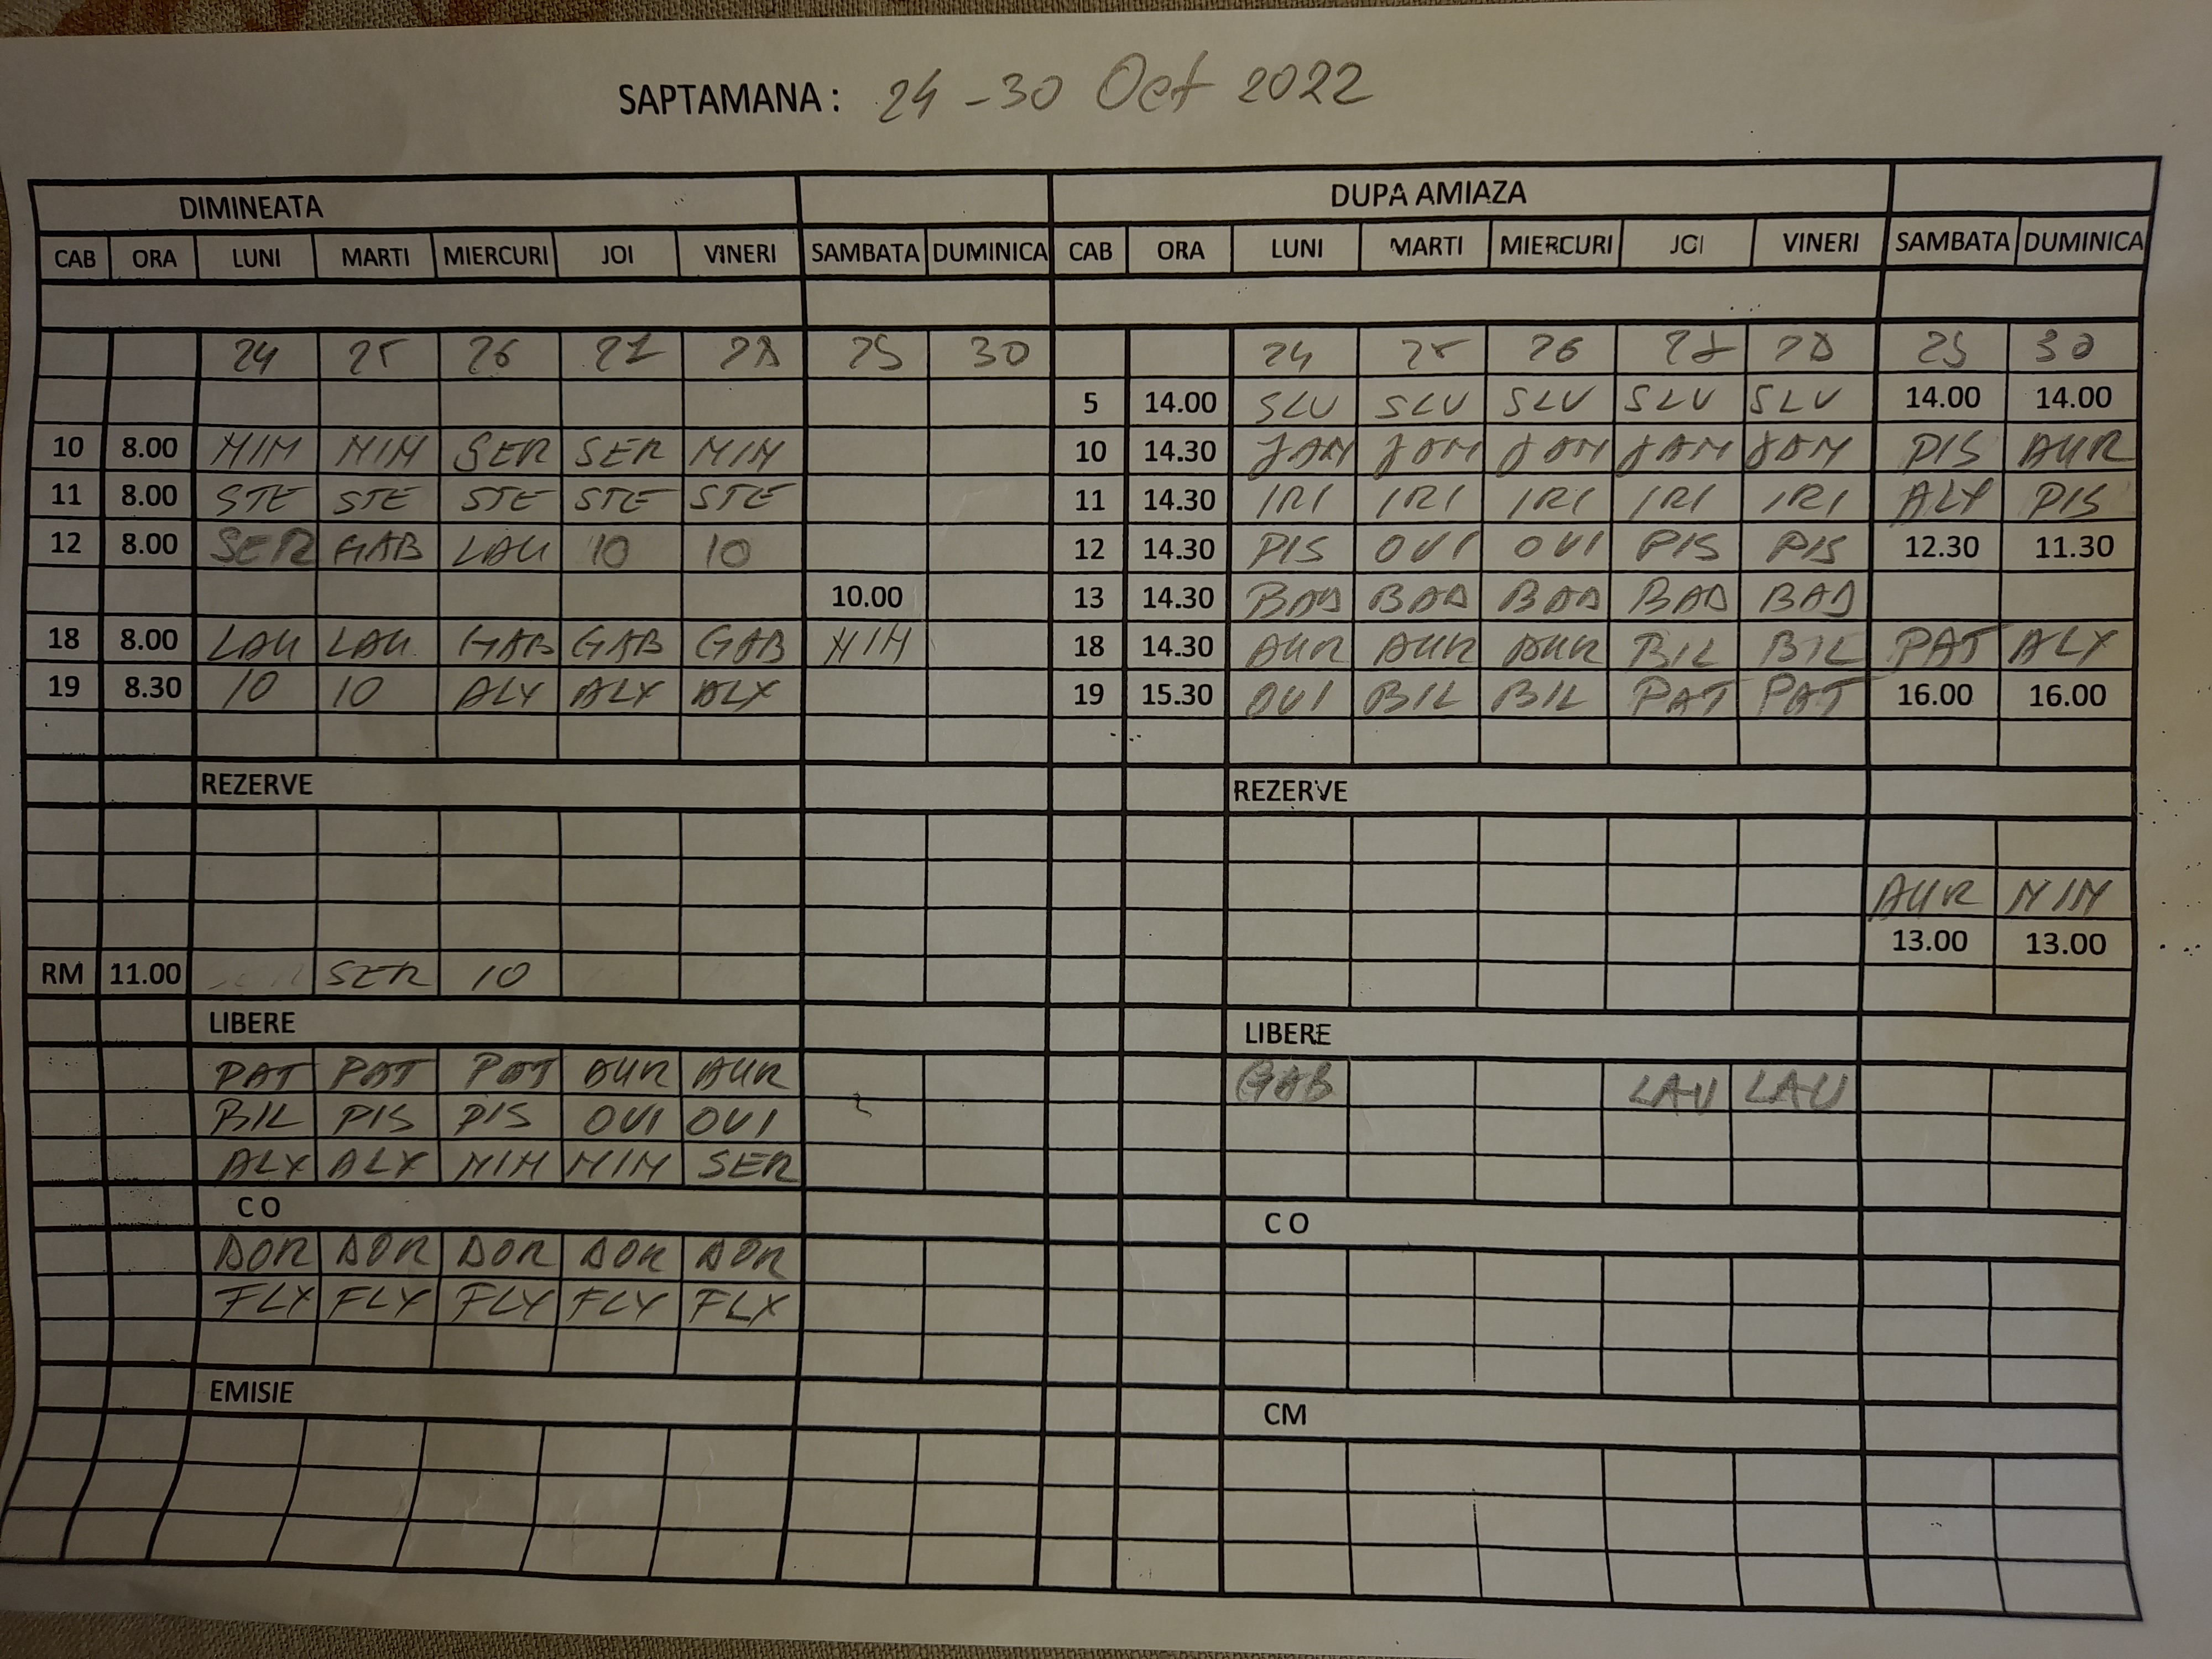 SAPTAMANA : 24 - 30 Oct 2022
DIMINEATA DUPA AMIAZA
CAB ORA LUNI MARTI MIERCURI JOI VINERI SAMBATA DUMINICA CAB ORA LUNI MARTI MIERCURI JOI VINERI SAMBATA DUMINICA
24 25 26 27 28 29 30 24 25 26 27 28 29 30
5 14.00 SLV SLV SLV SLV SLV 14.00 14.00
10 8.00 MIM MIM SER SER MIM 10 14.30 JAM JAM JAM JAM JAM PIS AUR
11 8.00 STE STE STE STE STE 11 14.30 IRI IRI IRI IRI IRI ALX PIS
12 8.00 SER GAB LAU 10 10 12 14.30 PIS OVI OVI PIS PIS 12.30 11.30
10.00 13 14.30 BAD BAD BAD BAD BAD
18 8.00 LAU LAU GAB GAB GAB MIM 18 14.30 AUR AUR AUR BIL BIL PAT ALX
19 8.30 10 10 ALX ALX ALX 19 15.30 OVI BIL BIL PAT PAT 16.00 16.00
REZERVE REZERVE
AUR MIM
13.00 13.00
RM 11.00 SER 10
LIBERE LIBERE
PAT PAT PAT AUR AUR GAB LAU LAU
BIL PIS PIS OVI OVI
ALX ALX MIM MIM SER
C O C O
DOR DOR DOR DOR DOR
FLX FLX FLX FLX FLX
EMISIE CM